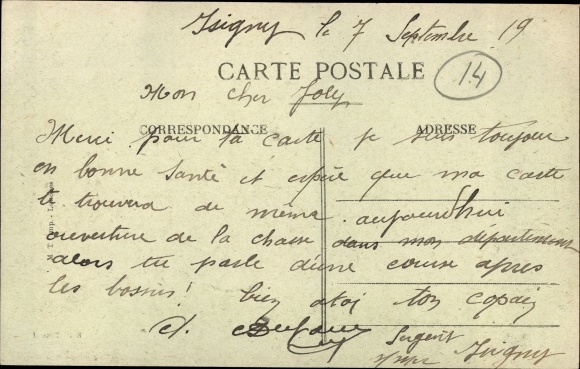 Isigny le 7 Septembre 19
14
CARTE POSTALE
Mon cher Joly
CORRESPONDANCE ADRESSE
Merci pour ta carte je suis toujour
en bonne santé et espère que ma carte
te trouvera de même. aujourd'hui
ouverture de la chasse dans mon département
alors tu parle d'une course apres
les bossus! bien a toi ton copain
Sergent
Isigny